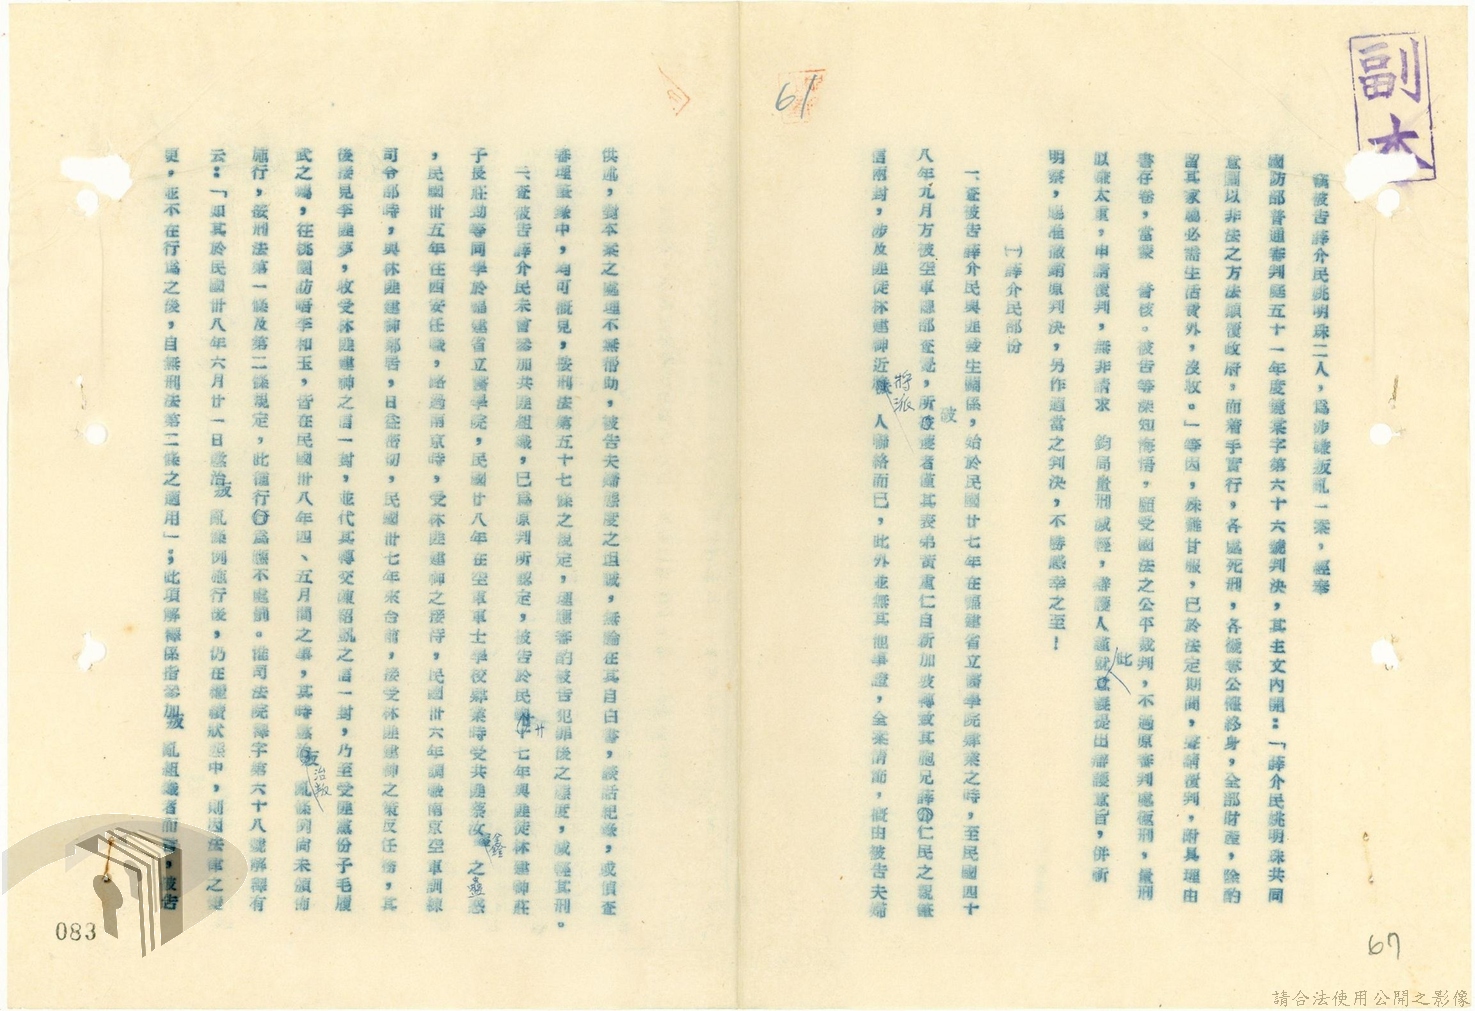 副本
61
竊被告薛介民姚明珠二人,為涉嫌叛亂一案,經奉
國防部普通審判庭五十一年度遵案字第六十六號判決,其主文內開:「薛介民姚明珠共同
意圖以非法之方法顛覆政府,而着手實行,各處死刑,各褫奪公權終身,全部財產,除酌
留其家屬必需生活費外,沒收。」等因,殊難甘服,已於法定期間,聲請復判,附具理由
書存卷,當蒙 督核。被告等深知悔悟,願受國法之公平裁判,不過原審判處極刑,量刑
似嫌太重,申請復判,無非請求 鈞局量刑減輕,辯護人謹就此意義提出辯護意旨,併祈
明察,
撤銷原判決,另作適當之判決,不勝感幸之至!
(一)薛介民部份
一、查被告薛介民與匪發生關係,始於民國廿七年在福建省立醫學院肄業之時,至民國四十
八年九月方被空軍總部查覺,所
被
者僅其表弟黃重仁自新加坡轉來其胞兄薛
仁民之親筆
信兩封,涉及匪徒林建神近
將派
人聯絡而已,此外並無其他事證,全案情節,概由被告夫婦
供述,對本案之處理不無幫助,被告夫婦態度之坦誠,無論在其自白書,談話紀錄,或偵查
審理筆錄中,均可概見,按刑法第五十七條之規定,理應審酌被告犯罪後之態度,減輕其刑。
二、查被告薛介民未曾參加共匪組織,已為原判所認定,被告於民國廿七年與匪徒林建神莊
子長莊勁等同學於福建省立醫學院,民國廿八年在空軍軍士學校肄業時受共匪蔡汝鑫之蠱惑
,民國卅五年在西安任職,路過南京時,受林匪建神之接待,民國卅六年調職南京空軍訓練
司令部時,與林匪建神鄰居,日益密切,民國卅七年來台前,接受林匪建神之策反任務,其
後接見李匪夢,收受林匪建神之信一封,並代其轉交陳紹凱之信一封,乃至受匪黨份子毛履
武之囑,往桃園訪晤李和玉,皆在民國卅八年四、五月間之事,其時懲治叛亂條例尚未頒佈
施行,按刑法第一條及第二條規定,此種行為應不處罰。惟司法院釋字第六十八號解釋有
云:「如其於民國卅八年六月廿一日懲治叛亂條例施行後,仍在繼續狀態中,則因法律之變
更,並不在行為之後,自無刑法第二條之適用」;此項解釋係指參加叛亂組織者而言,被告
083
67
請合法使用公開之影像